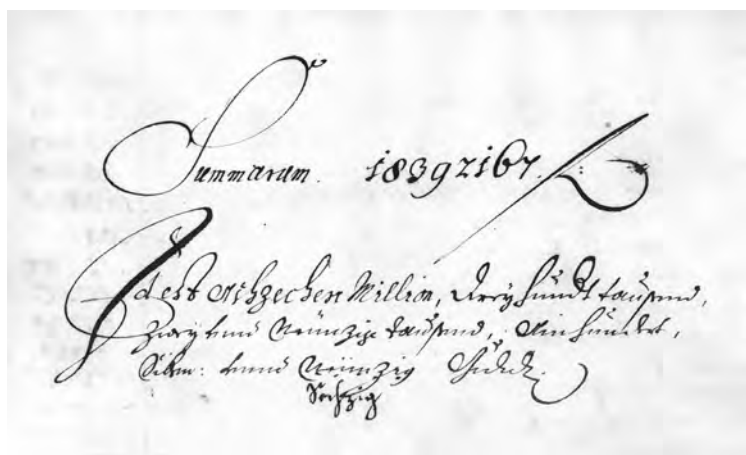 Summarum. 18392167.
Id est Achzechen Million, Dreyhundt tausend,
zwey unnd Neünzig tausend, Ain hundert,
Siben: unnd Neünzig
Sechzig